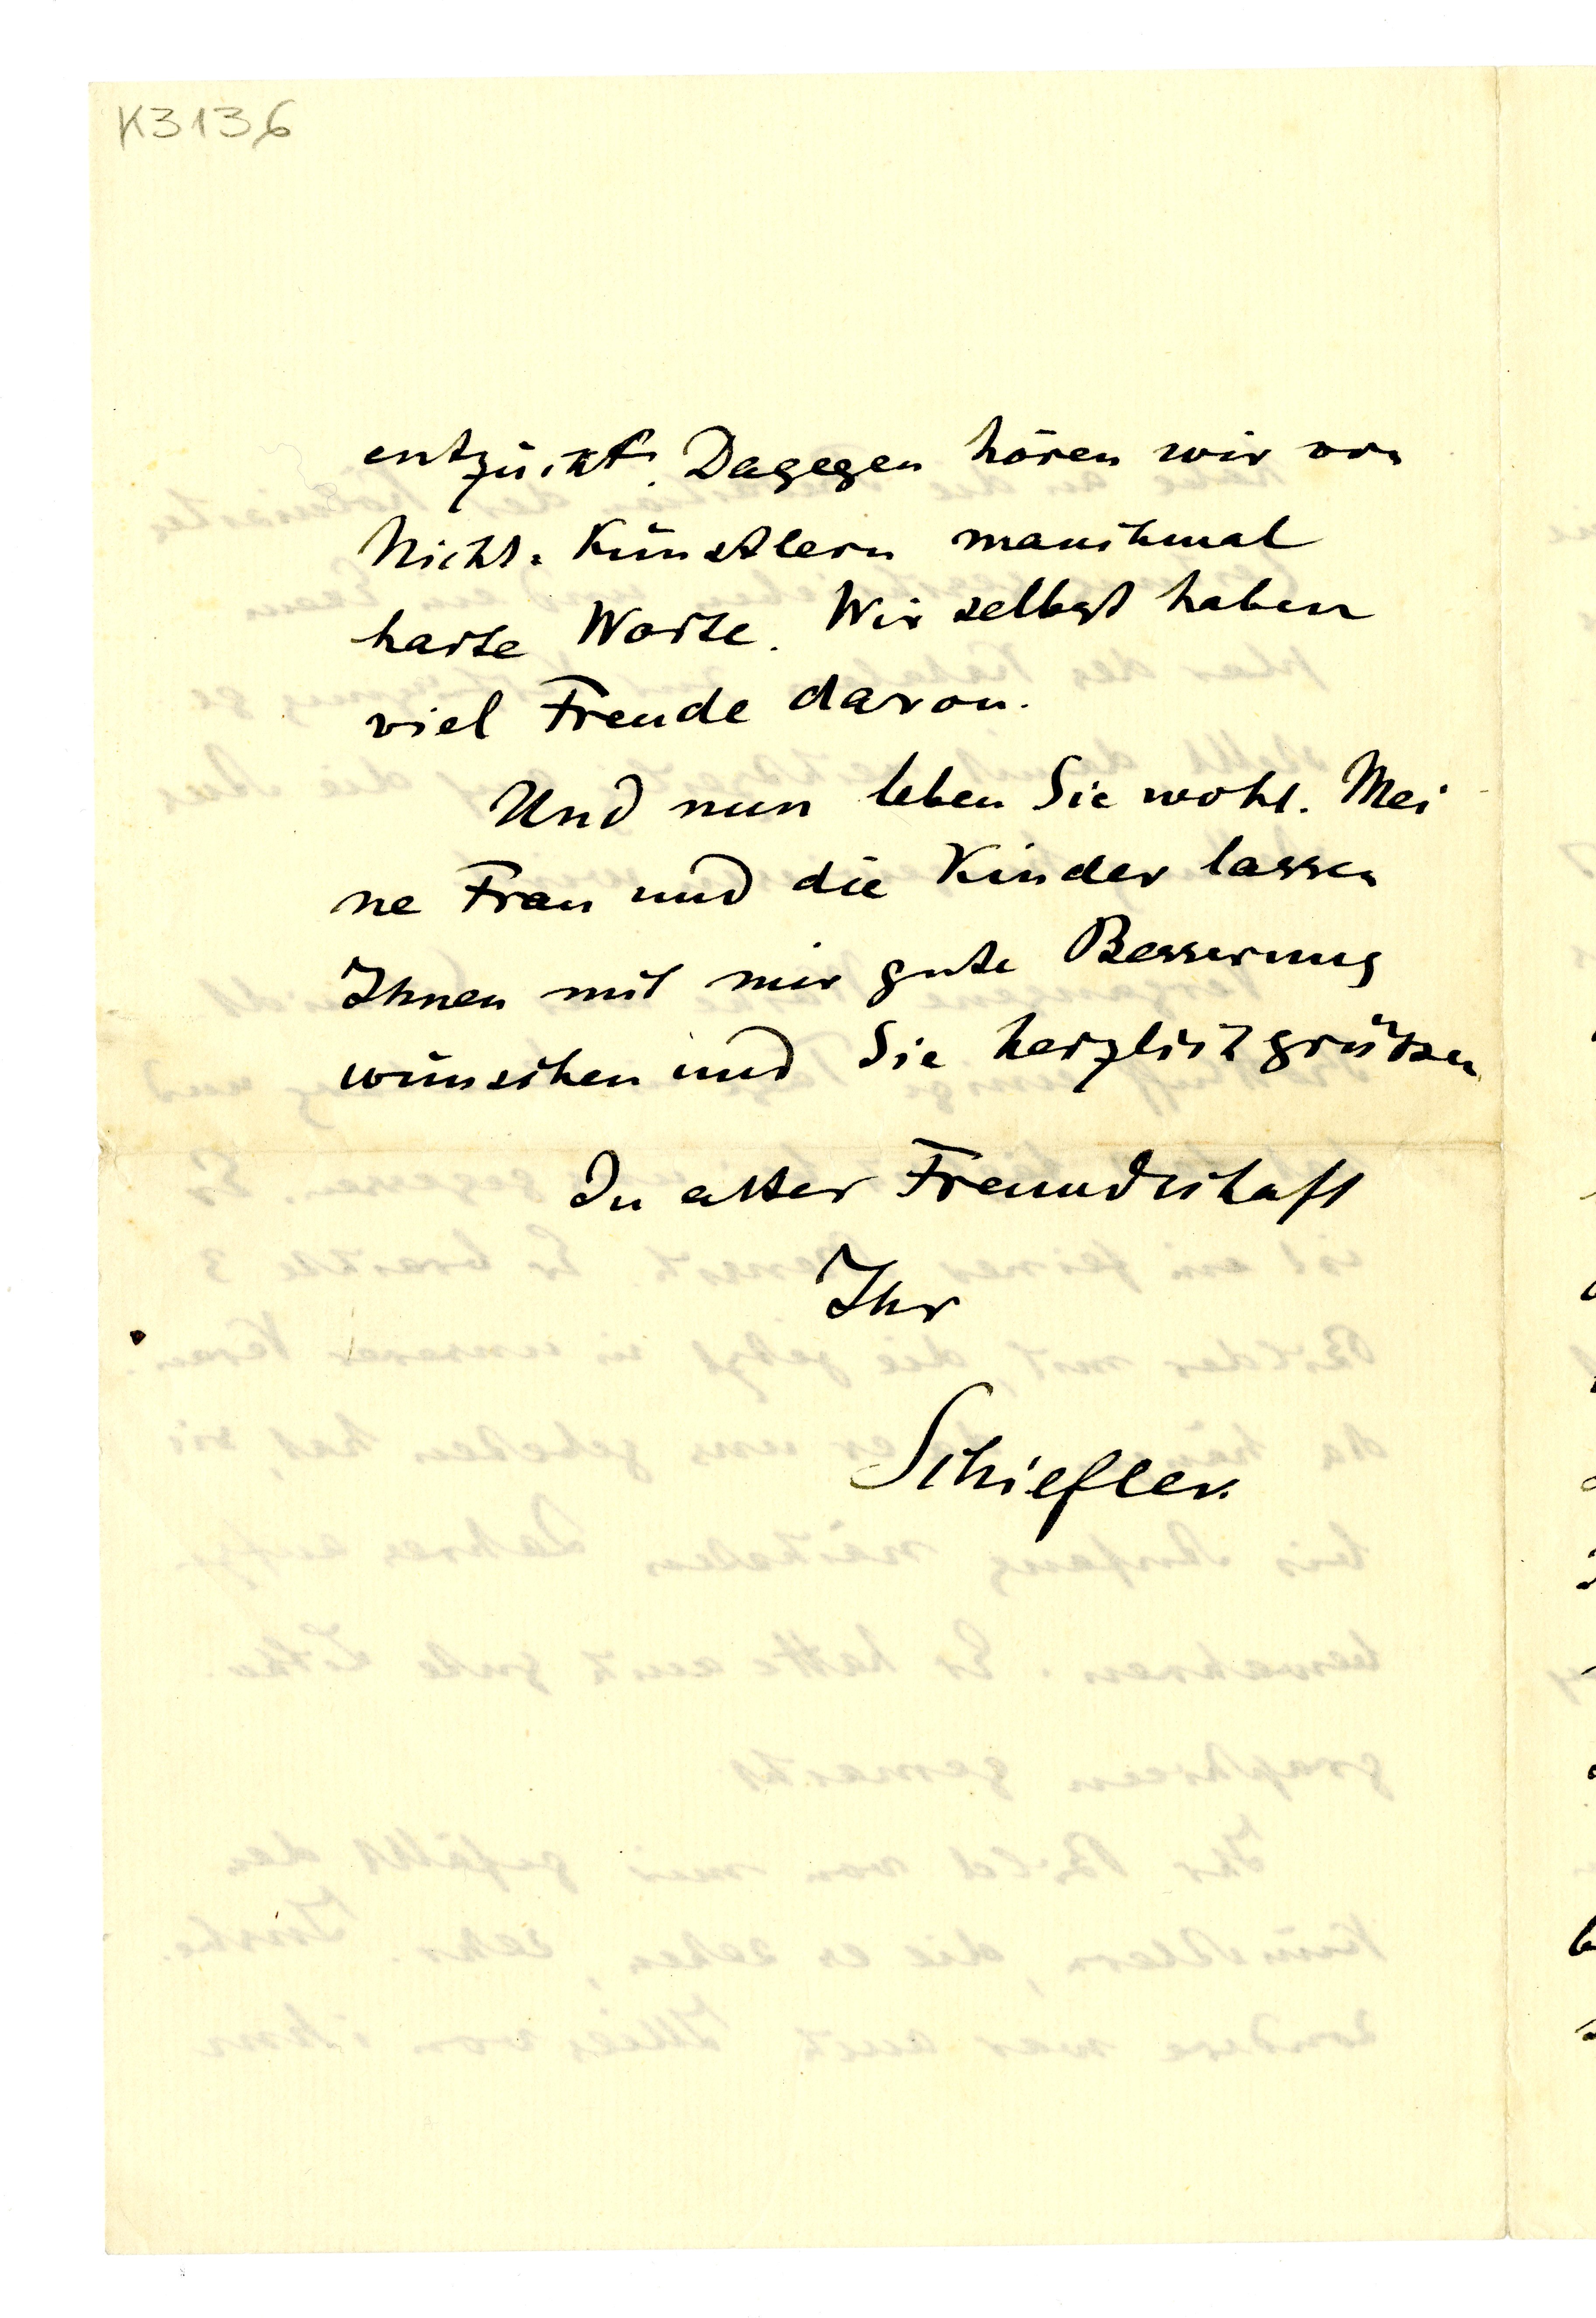 K3136
entzückt. Dagegen hören wir von
Nicht-Künstlern manchmal
harte Worte. Wir selbst haben
viel Freude davon.
Und nun leben Sie wohl. Mei
ne Frau und die Kinder lassen
Ihnen mit mir gute Besserung
wünschen und Sie herzlich grüssen
In alter Freundschaft
Ihr
Schiefler.